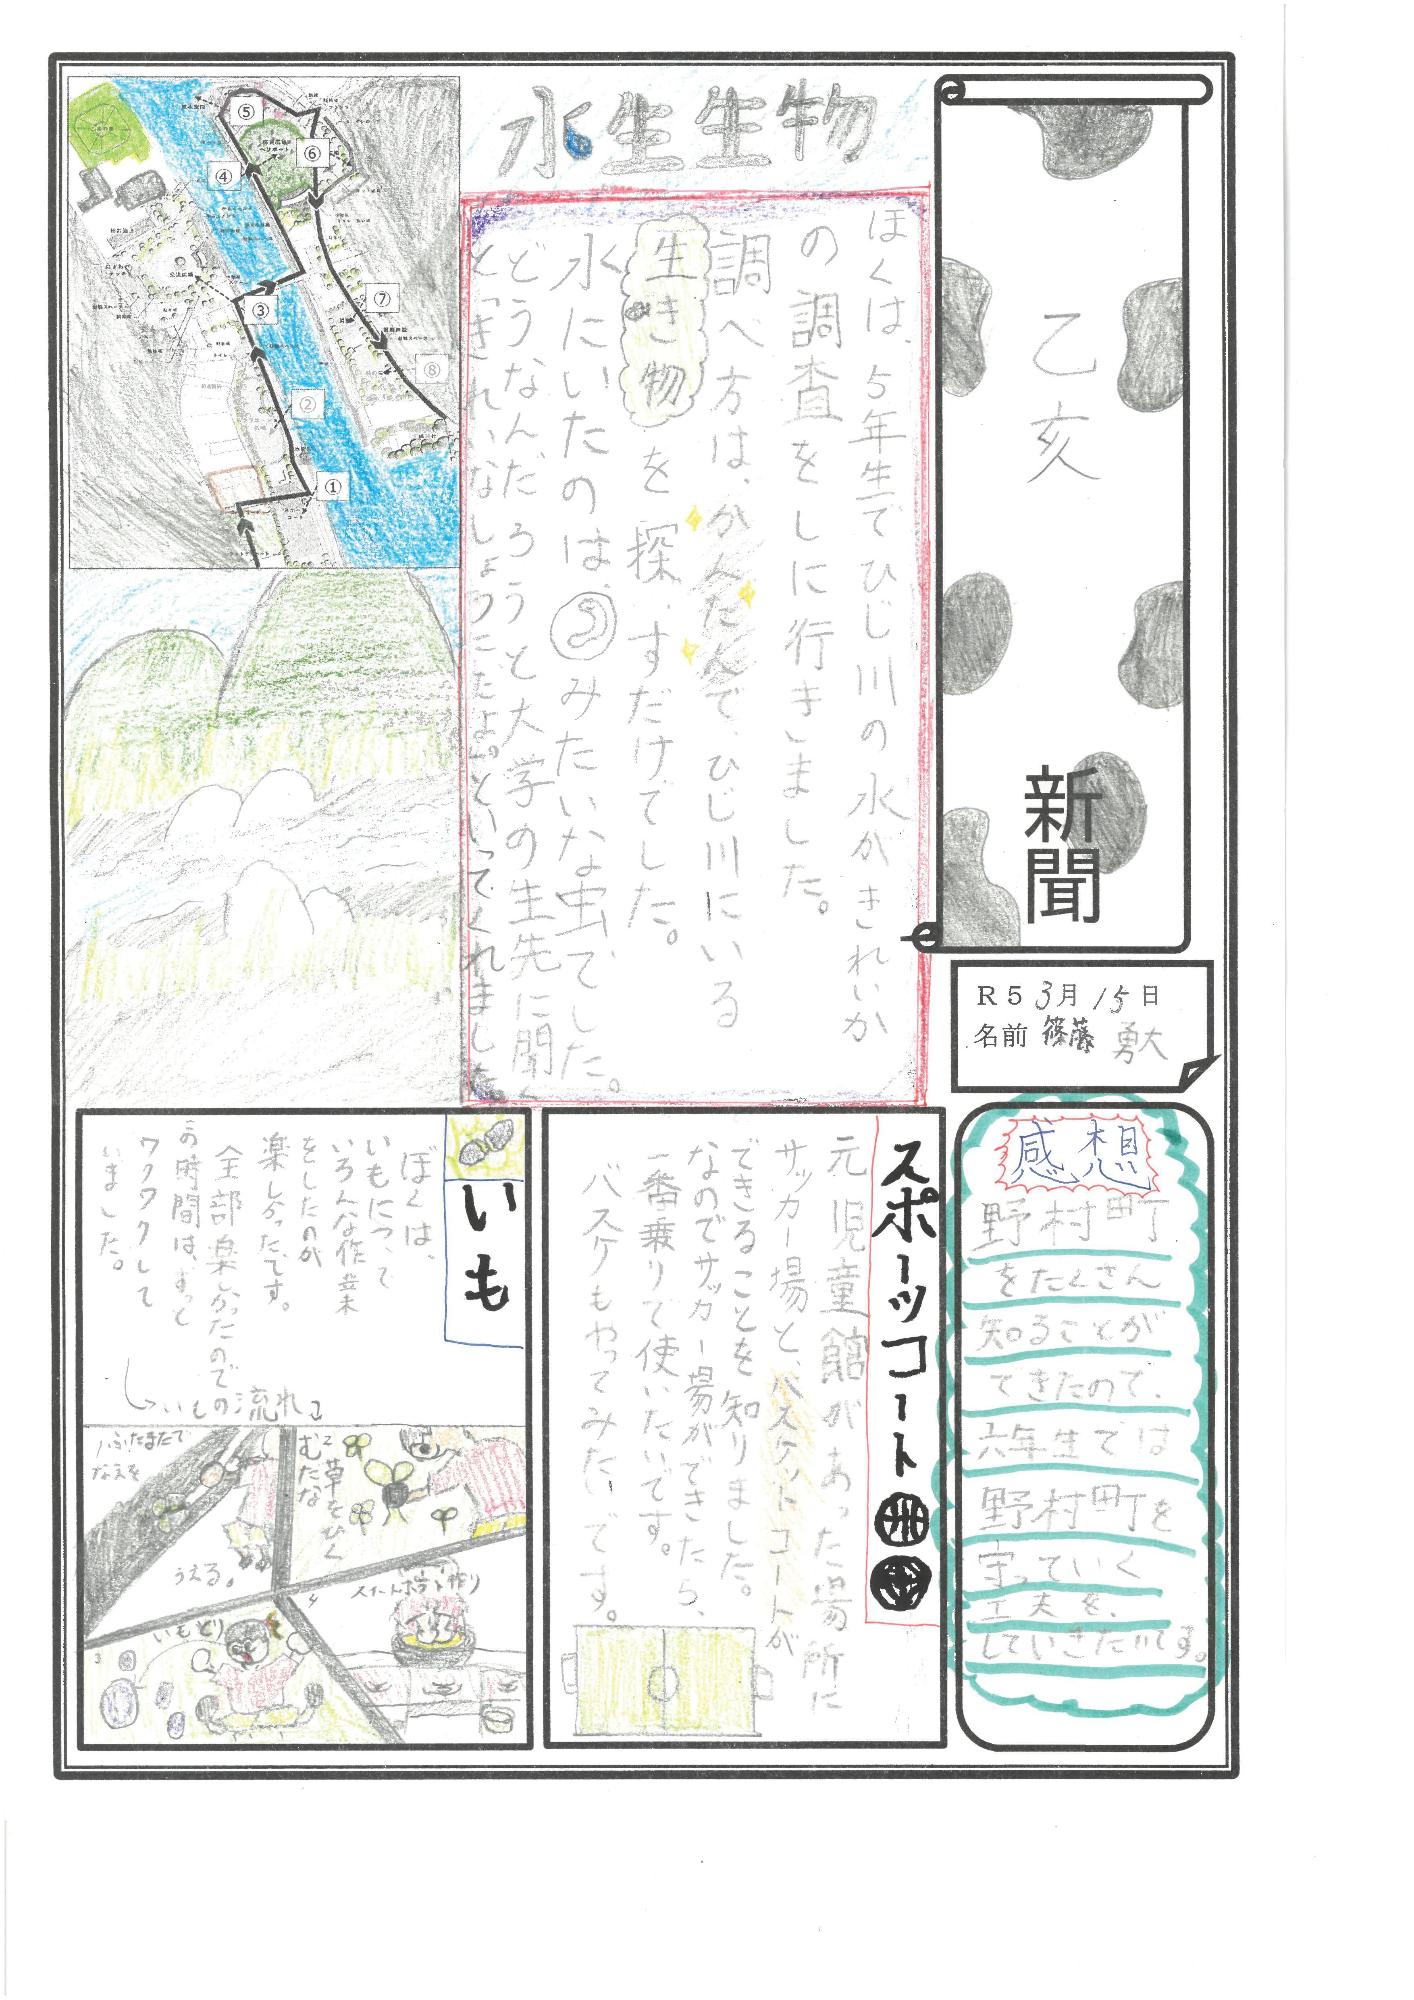 乙亥
新聞
R5 3月15日
名前 篠藤 勇大
水生生物
ぼくは、5年生でひじ川の水がきれいか
の調査をしに行きました。
調べ方は、かんたんで、ひじ川にいる
生き物を探すだけでした。
水にいたのは、みたいな虫でした。
どうなんだろうと大学の生先に聞く
と「きれいなしょうこだよ。」といってくれました
①
②
③
④
⑤
⑥
⑦
⑧
感想
野村町
をたくさん
知ることが
できたので、
六年生では
野村町を
守っていく
工夫を、
していきたいです。
スポーツコート
元児童館があった場所に
サッカー場と、バスケットコートが
できることを知りました。
なのでサッカー場ができたら、
一番乗りで使いたいです。
バスケもやってみたいです。
いも
ぼくは、
いもについて
いろんな作業
をしたのが
楽しかったです。
全部楽しかったので
の時間は、ずっと
ワクワクして
いました。
いもの流れ
1
ふたまたで
なえを
うえる。
2
草をひく
むだな
3
いもとり
4
スイートポテト作り